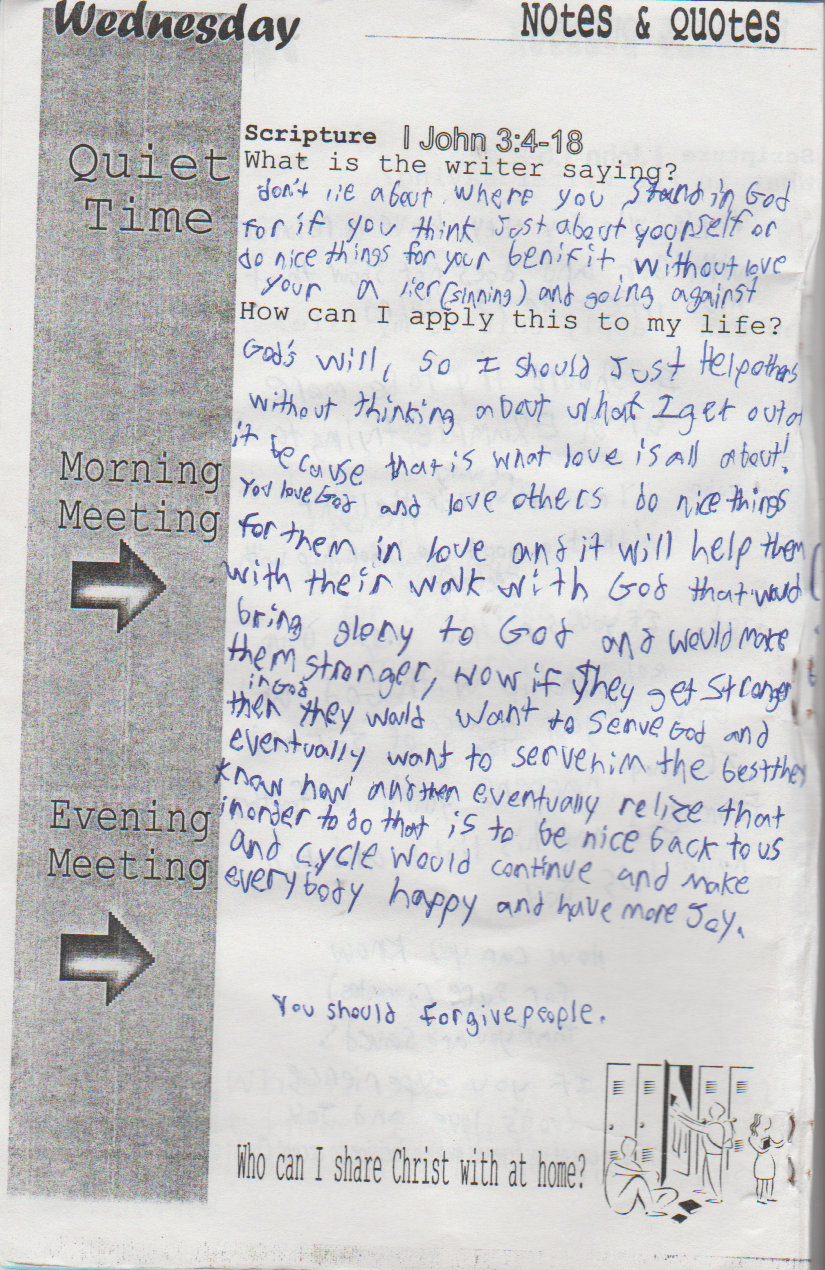 Wednesday
Notes & Quotes
Quiet
Time
Scripture I John 3:4-18
What is the writer saying?
don't lie about where you stand in God
for if you think Just about yourself or
do nice things for your benifit without love
your a lier (sinning) and going against
How can I apply this to my life?
God's will, so I should Just Help others
without thinking about what I get out of
it because that is what love is all about!
Morning
Meeting
You love God and love others do nice things
for them in love and it will help them
with their walk with God that would
bring glory to God and would make
them stronger, now if they get stronger
in God
then they would want to serve God and
eventually want to serve him the best they
know how and then eventually relize that
Evening
Meeting
in order to do that is to be nice back to us
and cycle would continue and make
everybody happy and have more Joy.
You should forgive people.
Who can I share Christ with at home?